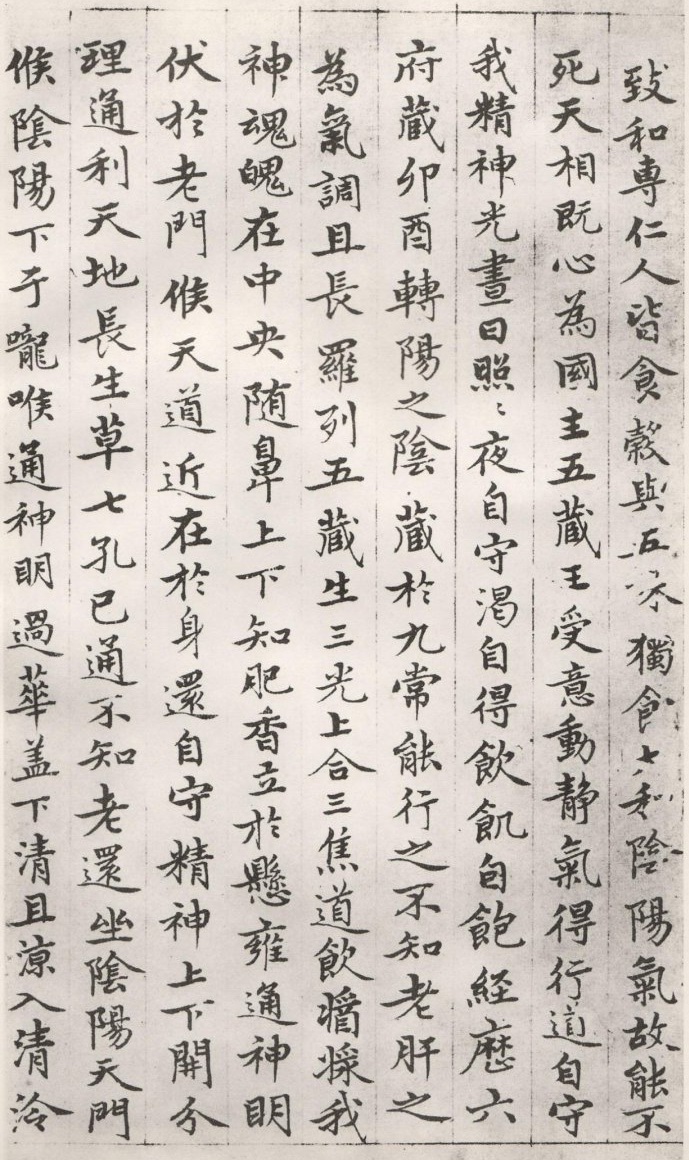 致和專仁人皆食穀與五味獨食太和陰陽氣故能不
死天相既心為國主五藏王受意動靜氣得行道自守
我精神光晝日照〻夜自守渴自得飲飢自飽經歷六
府藏卯酉轉陽之陰藏於九常能行之不知老肝之
為氣調且長羅列五藏生三光上合三焦道飲醬將我
神魂魄在中央随鼻上下知肥香立於懸雍通神明
伏於老門候天道近在於身還自守精神上下開分
理通利天地長生草七孔已通不知老還坐陰陽天門
候陰陽下于嚨喉通神明過華盖下清且涼入清泠